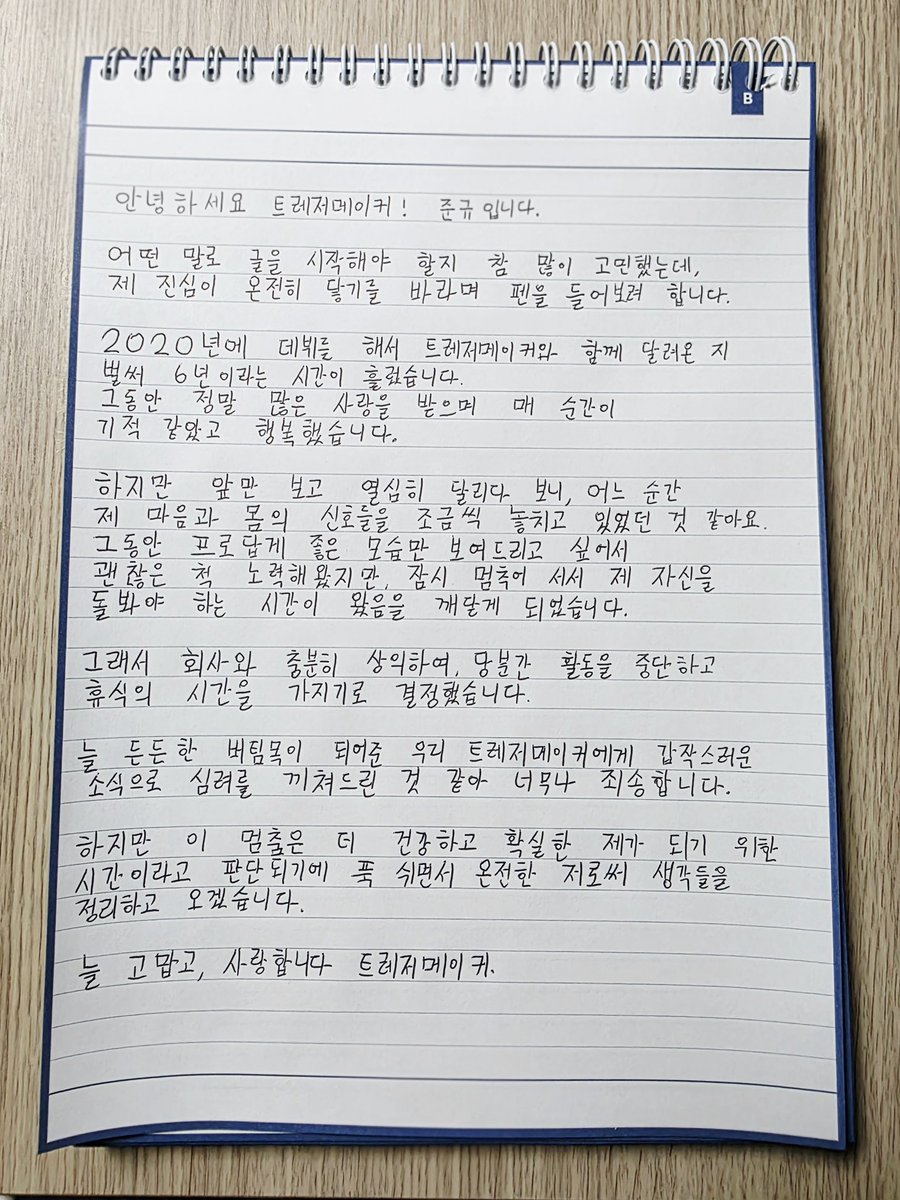 B
안녕하세요 트레저메이커! 준규입니다.
어떤 말로 글을 시작해야 할지 참 많이 고민했는데,
제 진심이 온전히 닿기를 바라며 펜을 들어보려 합니다.
2020년에 데뷔를 해서 트레저메이커와 함께 달려온 지
벌써 6년이라는 시간이 흘렀습니다.
그동안 정말 많은 사랑을 받으며 매 순간이
기적 같았고 행복했습니다.
하지만 앞만 보고 열심히 달리다 보니, 어느 순간
제 마음과 몸의 신호들을 조금씩 놓치고 있었던 것 같아요.
그동안 프로답게 좋은 모습만 보여드리고 싶어서
괜찮은 척 노력해왔지만, 잠시 멈추어 서서 제 자신을
돌봐야 하는 시간이 왔음을 깨닫게 되었습니다.
그래서 회사와 충분히 상의하여, 당분간 활동을 중단하고
휴식의 시간을 가지기로 결정했습니다.
늘 든든한 버팀목이 되어준 우리 트레저메이커에게 갑작스러운
소식으로 심려를 끼쳐드린 것 같아 너무나 죄송합니다.
하지만 이 멈춤은 더 건강하고 확실한 제가 되기 위한
시간이라고 판단되기에 푹 쉬면서 온전한 저로써 생각들을
정리하고 오겠습니다.
늘 고맙고, 사랑합니다 트레저메이커.